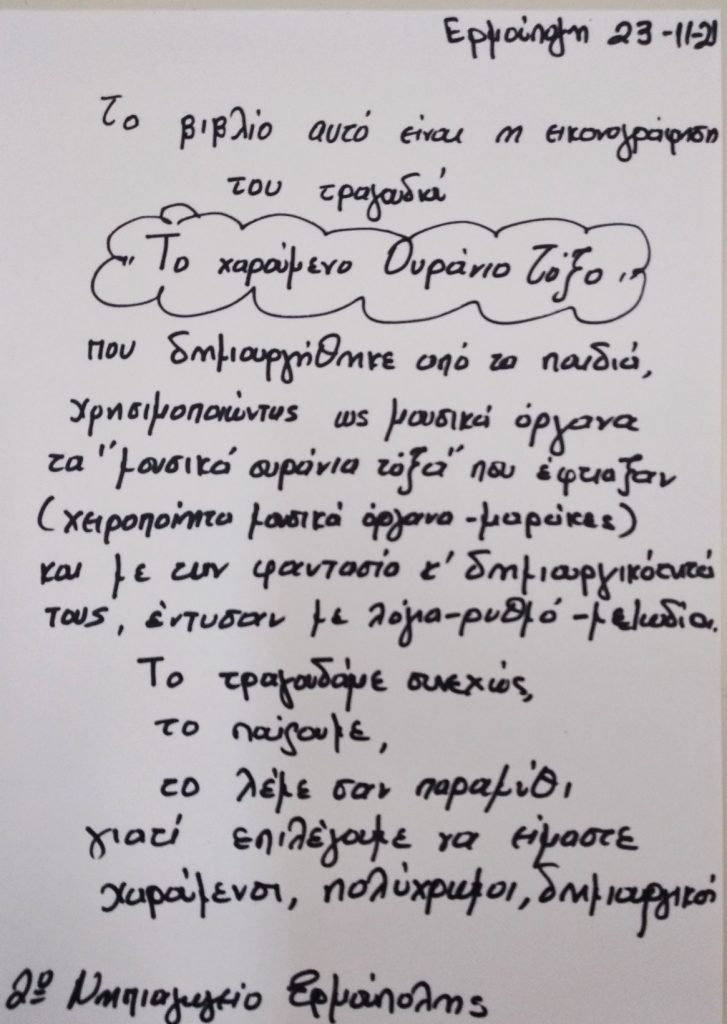 Ερμούπολη 23-11-21
Το βιβλίο αυτό είναι η εικονογράφηση
του τραγουδιού
"Το χαρούμενο Ουράνιο Τόξο"
που δημιουργήθηκε από τα παιδιά,
χρησιμοποιώντας ως μουσικά όργανα
τα "μουσικά ουράνια τόξα" που έφτιαξαν
(χειροποίητα μουσικά όργανα-μαράκες)
και με την φαντασία κ' δημιουργικότητά
τους, έντυσαν με λόγια-ρυθμό-μελωδία.
Το τραγουδάμε συνεχώς,
το παίζουμε,
το λέμε σαν παραμύθι
γιατί επιλέγουμε να είμαστε
χαρούμενοι, πολύχρωμοι, δημιουργικοί
2ο Νηπιαγωγείο Ερμούπολης